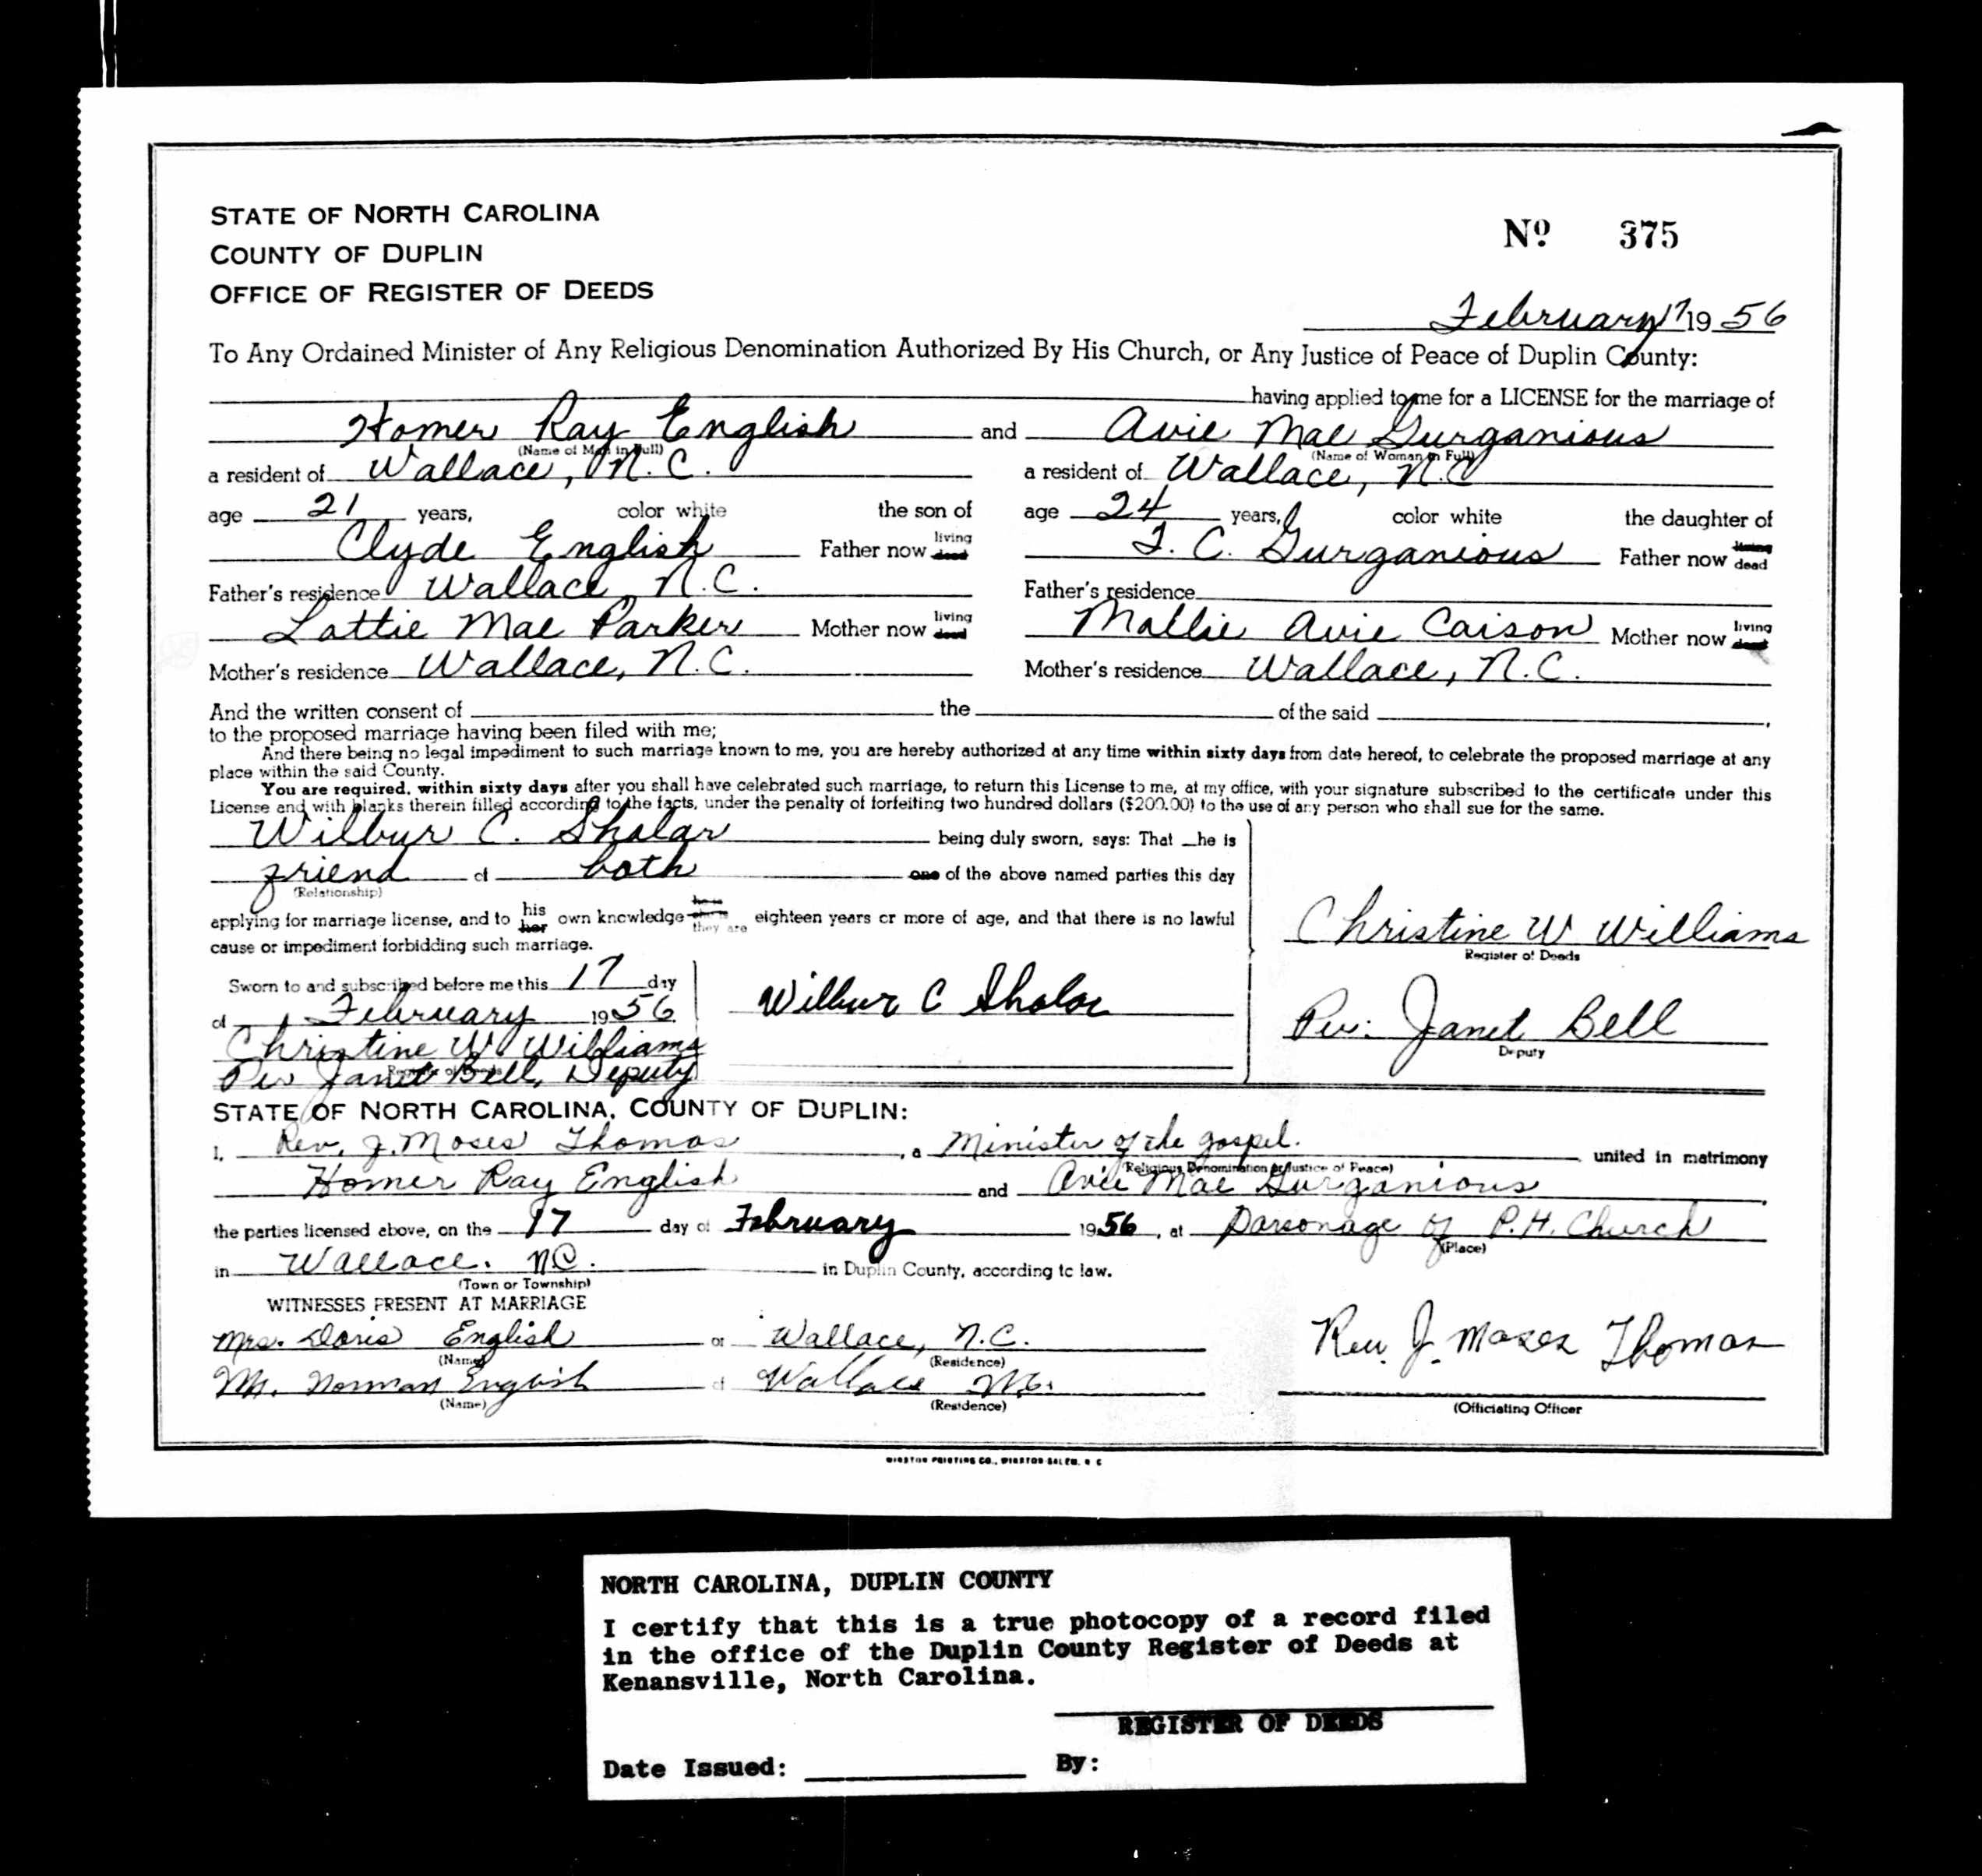 STATE OF NORTH CAROLINA
COUNTY OF DUPLIN
OFFICE OF REGISTER OF DEEDS
No 375
February 17 19 56
To Any Ordained Minister of Any Religious Denomination Authorized By His Church, or Any Justice of Peace of Duplin County:
having applied to me for a LICENSE for the marriage of
Homer Ray English and Avie Mae Gurganious
(Name of Man in Full) (Name of Woman in Full)
a resident of Wallace, N.C. a resident of Wallace, N.C
age 21 years, color white the son of age 24 years, color white the daughter of
Clyde English Father now living dead J. C. Gurganious Father now living dead
Father's residence Wallace, N.C. Father's residence
Lottie Mae Parker Mother now living dead Mallie Avie Caison Mother now living dead
Mother's residence Wallace, N.C. Mother's residence Wallace, N.C.
And the written consent of the of the said ,
to the proposed marriage having been filed with me;
And there being no legal impediment to such marriage known to me, you are hereby authorized at any time within sixty days from date hereof, to celebrate the proposed marriage at any
place within the said County.
You are required, within sixty days after you shall have celebrated such marriage, to return this License to me, at my office, with your signature subscribed to the certificate under this
License and with blanks therein filled according to the facts, under the penalty of forfeiting two hundred dollars ($200.00) to the use of any person who shall sue for the same.
Wilbur C. Sholar being duly sworn, says: That he is
friend of both one of the above named parties this day
(Relationship)
applying for marriage license, and to his her own knowledge he is she is they are eighteen years or more of age, and that there is no lawful
cause or impediment forbidding such marriage.
Christine W Williams
Register of Deeds
Sworn to and subscribed before me this 17 day
of February 19 56
Wilbur C Sholar
Christine W Williams
Register of Deeds
Per Janet Bell, Deputy
Per: Janet Bell
Deputy
STATE OF NORTH CAROLINA, COUNTY OF DUPLIN:
I, Rev. J. Moses Thomas , a Minister of the gospel. united in matrimony
(Religious Denomination or Justice of Peace)
Homer Ray English and Avie Mae Gurganious
the parties licensed above, on the 17 day of February 1956, at Parsonage of P.H. Church
(Place)
in Wallace. NC. in Duplin County, according to law.
(Town or Township)
WITNESSES PRESENT AT MARRIAGE
Mrs. Doris English of Wallace, N.C.
(Name) (Residence)
Mr. Norman English of Wallace N.C.
(Name) (Residence)
Rev. J. Moses Thomas
(Officiating Officer
WINSTON PRINTING CO., WINSTON-SALEM, N C
NORTH CAROLINA, DUPLIN COUNTY
I certify that this is a true photocopy of a record filed
in the office of the Duplin County Register of Deeds at
Kenansville, North Carolina.
REGISTER OF DEEDS
Date Issued: By: